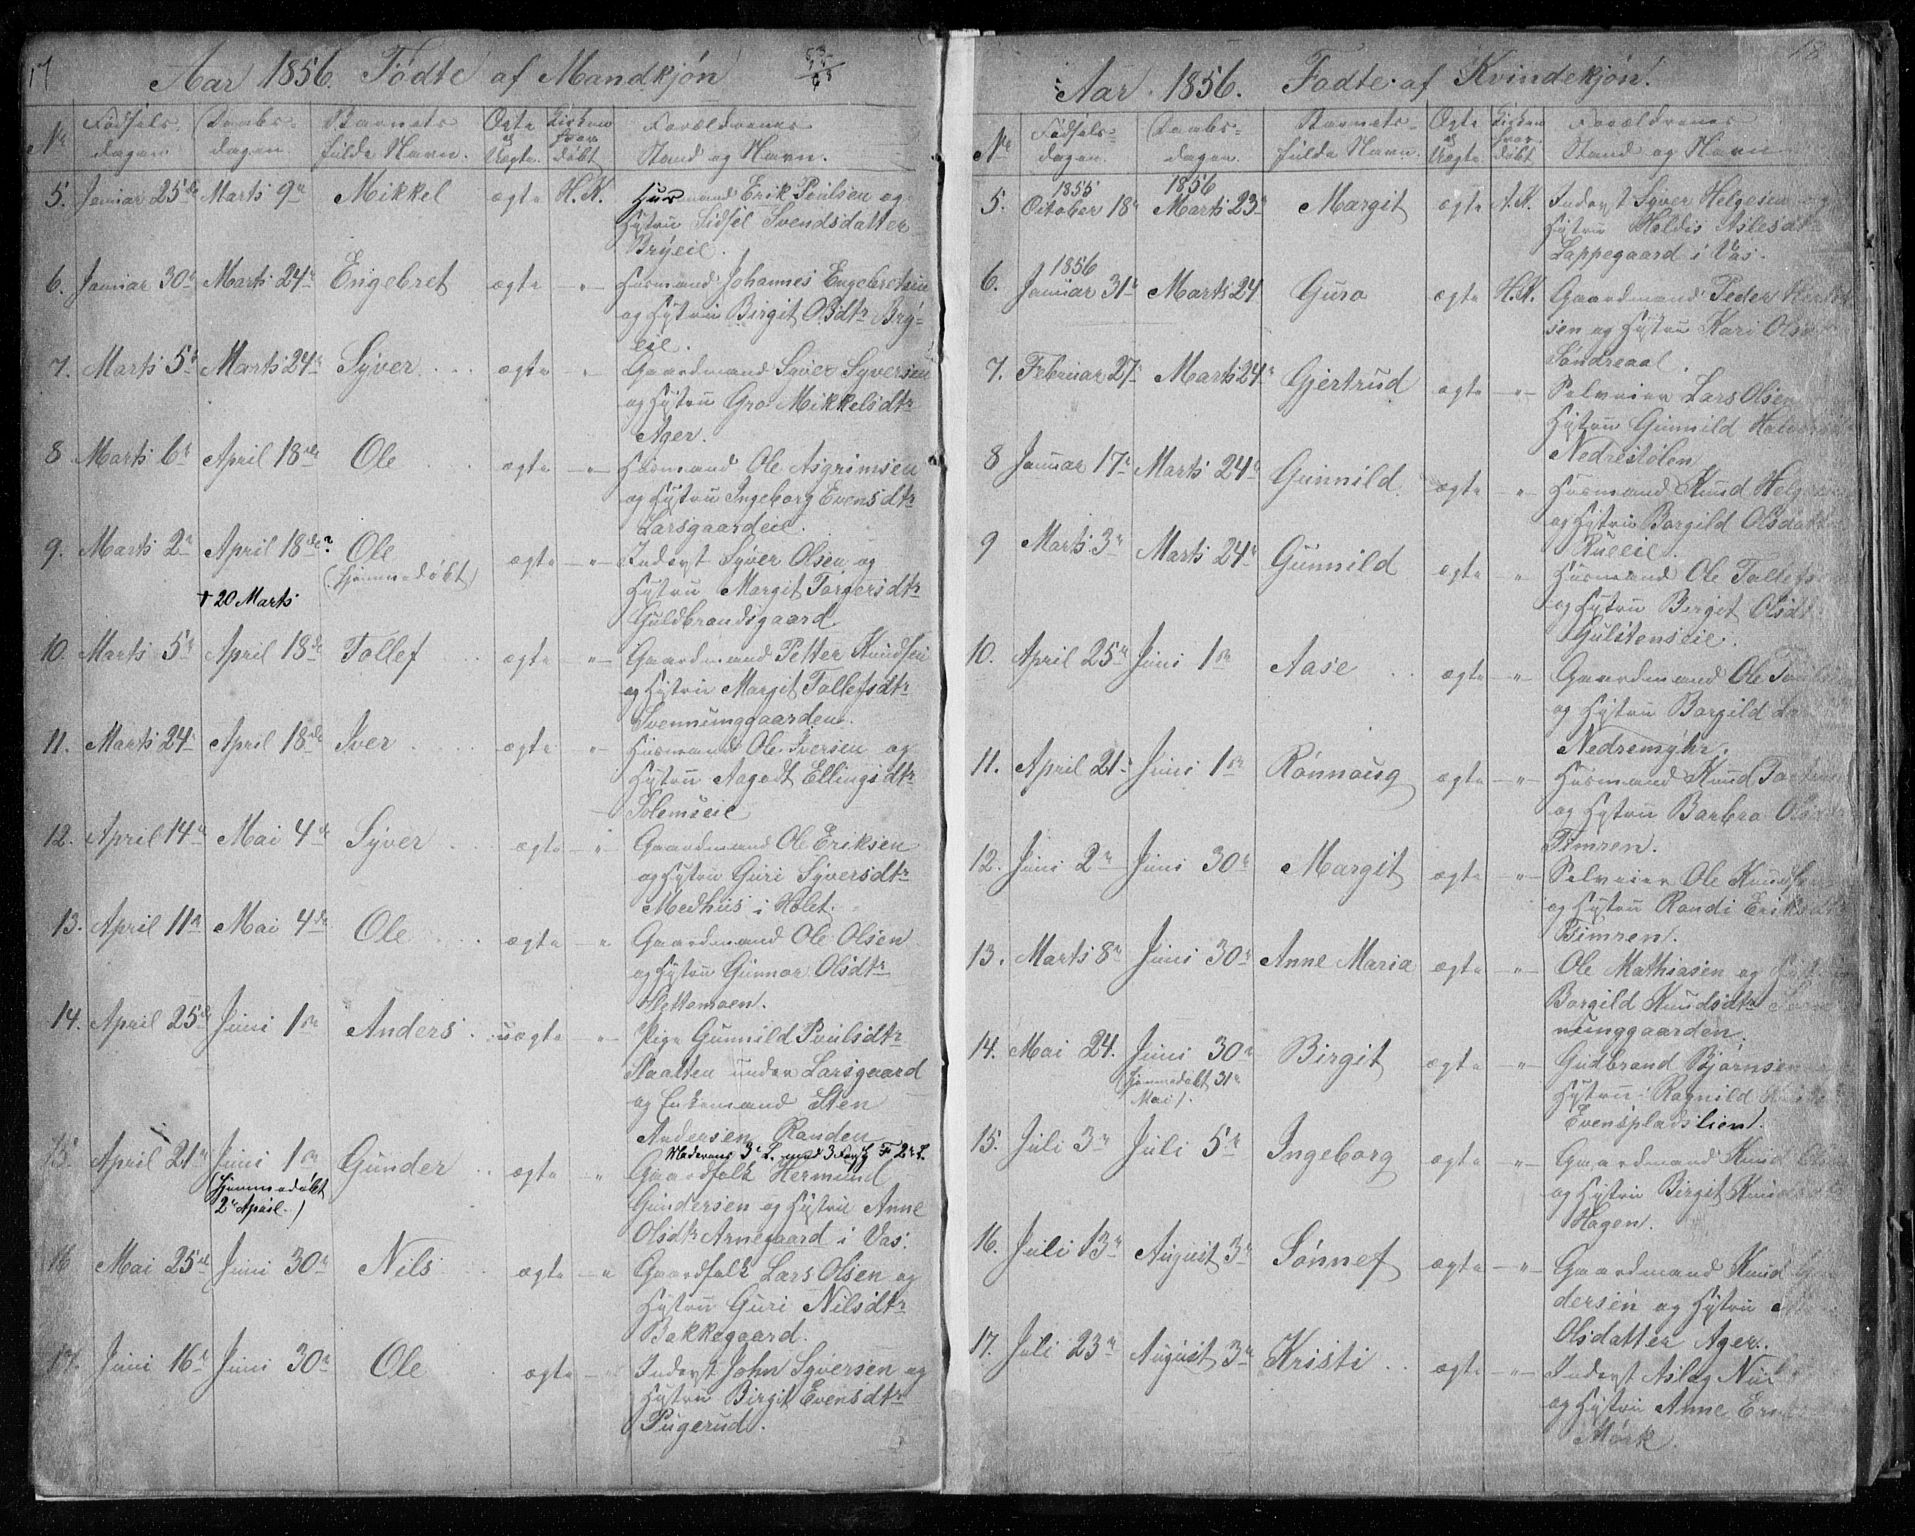 17
Aar 1856. Fødte af Mandkjøn
No Fødsels dagen. Daabs dagen. Barnets fulde Navn. Ægte og Uægte. Kirken hvor døbt Forældrenes Stand og Navn.
5. Januar 25de Marts 9n Mikkel ægte H. K. Husmand Erik Poulsen og
Hustru Sidsel Svendsdatter
Bryeie.
6. Januar 30n Marts 24n Engebret ægte -"- Husmand Johannes Engebretsen
og Hustru Birgit Olsdtr Bry-
eie.
7. Marts 5n Marts 24n Syver ægte " Gaardmand Syver Syversen
og Hustru Gro Mikkelsdtr
Ager.
8 Marts 6n April 18de Ole ægte -"- Husmand Ole Asgrimsen
og Hustru Ingeborg Evensdtr
Larsgaardeie.
9. Marts 2n April 18de? Ole ægte -"- Inderst Syver Olsen og
(hjemmedøbt) Hustru Margit Torgersdtr
† 20 Marts Guldbrandsgaard
10. Marts 5n April 18de Tollef ægte -"- Gaardmand Petter Knudsen
og Hustru Margit Tollefsdtr
Svennunggaarden.
11. Marts 24n April 18de Iver ægte " Husmand Ole Iversen og
Hustru Aagodt Ellingsdtr
Solemseie
12. April 14n Mai 4de Syver ægte -"- Gaardmand Ole Eriksen
og Hustru Guri Syversdtr
Medhus i Holet.
13. April 11n Mai 4de Ole ægte -" Gaardmand Ole Olsen
og Hustru Gunnor Olsdtr
Hettemoen.
14. April 25de Juni 1ste Anders uægte -"- Pige Gunnild Poulsdtr
Slaatten under Larsgaard
og Enkemand Sten
Andersen Randen
Moderens 3die L. med 3 Forsk F 2det L.
15. April 21n Juni 1ste Gunder ægte -" Gaardfolk Hermund
(hjemmedøbt Gundersen og Hustru Anne
2n April.) Olsdtr Arnegaard i Vas.
16 Mai 25de Juni 30n Nils ægte -" Gaardfolk Lars Olsen og
Hustru Guri Nilsdtr
Bakkegaard.
17. Juni 16n Juni 30n Ole ægte -" Inderst John Syversen og
Hustru Birgit Evensdtr
Pugerud.
18
Aar 1856. Fødte af Kvindekjøn.
No Fødsels- dagen. Daabs- dagen. Barnets- fulde Navn. Ægte og Uægte Kirken hvor døbt Forældrenes Stand og Navn
5. 1855 October 18n 1856 Marts 23n Margit ægte H.K. Inderst Syver Helgesen og
Hustru Holdis Aslesdtr
Lappegaard i Vas.
6. 1856 Januar 31n Marts 24 Guro ægte H.K. Gaardmand Peder
sen og Hustru Kari Olsd
Sondreaal.
7. Februar 27n Marts 24n Gjertrud ægte -"- Selveier Lars Olsen
Hustru Gunnild Halvors
Nedrestølen
8 Januar 17n Marts 24n Gunnild. ægte " Husmand Knud Helgesen
og Hustru Borgild Olsdatter
Rueeie.
9 Marts 3n Marts 24n Gunnild ægte " Husmand Ole Tollefsen
og Hustru Birgit Olsdt
Gulstenseie.
10. April 25n Juni 1ste Aase ægte -"- Gaardmand Ole
og Hustru Borgild
Nedremyhr.
11. April 21n Juni 1ste Rønnoug ægte -"- Husmand Knud
og Hustru Barbro Olsd
Timren.
12. Juni 2n Juni 30n Margit ægte -"- Selveier Ole Knudsen
og Hustru Randi Eriksdtr
Timren.
13. Marts 8n Juni 30n Anne Maria ægte -"- Ole Mathiasen og Hustru
Borgild Knudsdtr Sven
nunggaarden.
14. Mai 24. Juni 30n Birgit ægte -"- Gudbrand Bjørnsen
(hjemmedøbt 31n Hustru Ragnild
Mai). Evenspladslien.
15. Juli 3n Juli 5n Ingeborg ægte -"- Gaardmand Knud
og Hustru Birgit Knudsdtr
Hagen.
16. Juli 13n August 3n Sønnef ægte -"- Gaardmand Knud Gun
dersen og Hustru
Olsdatter Ager.
17. Juli 23n August 3n Kristi ægte -"- Inderst Aslag
og Hustru Anne
Mørk.